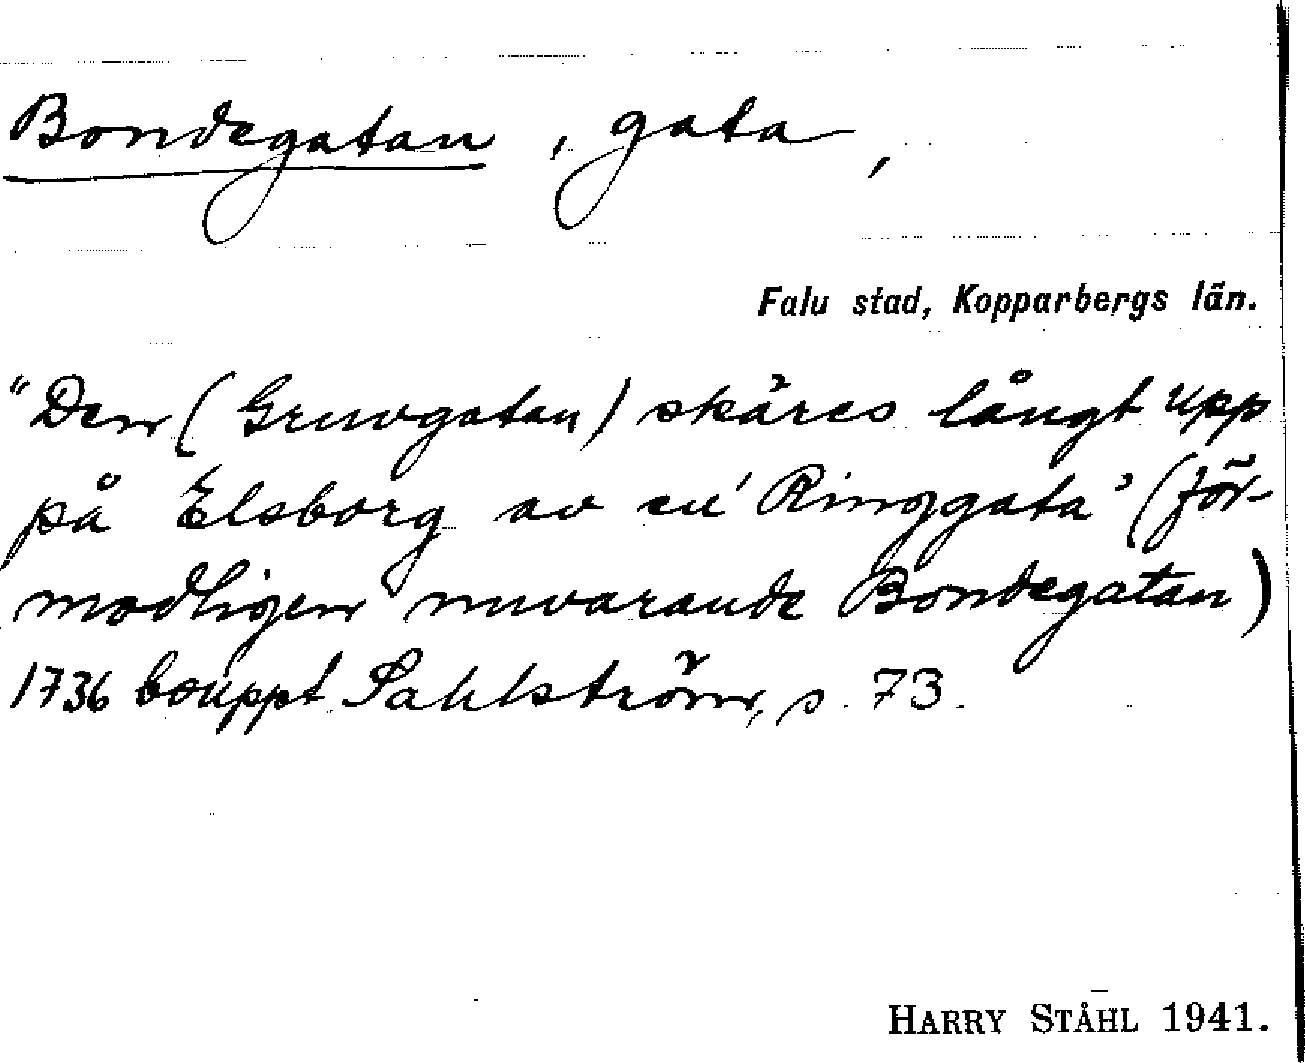 Bondegatan, gata,
Falu stad, Kopparbergs län.
"Den (Gruvgatan) skäres långt upp
på Elsborg av en 'Ringgata' (för-
modligen nuvarande Bondegatan)
1736 Sahlström, s. 73.
HARRY STÅHL 1941.